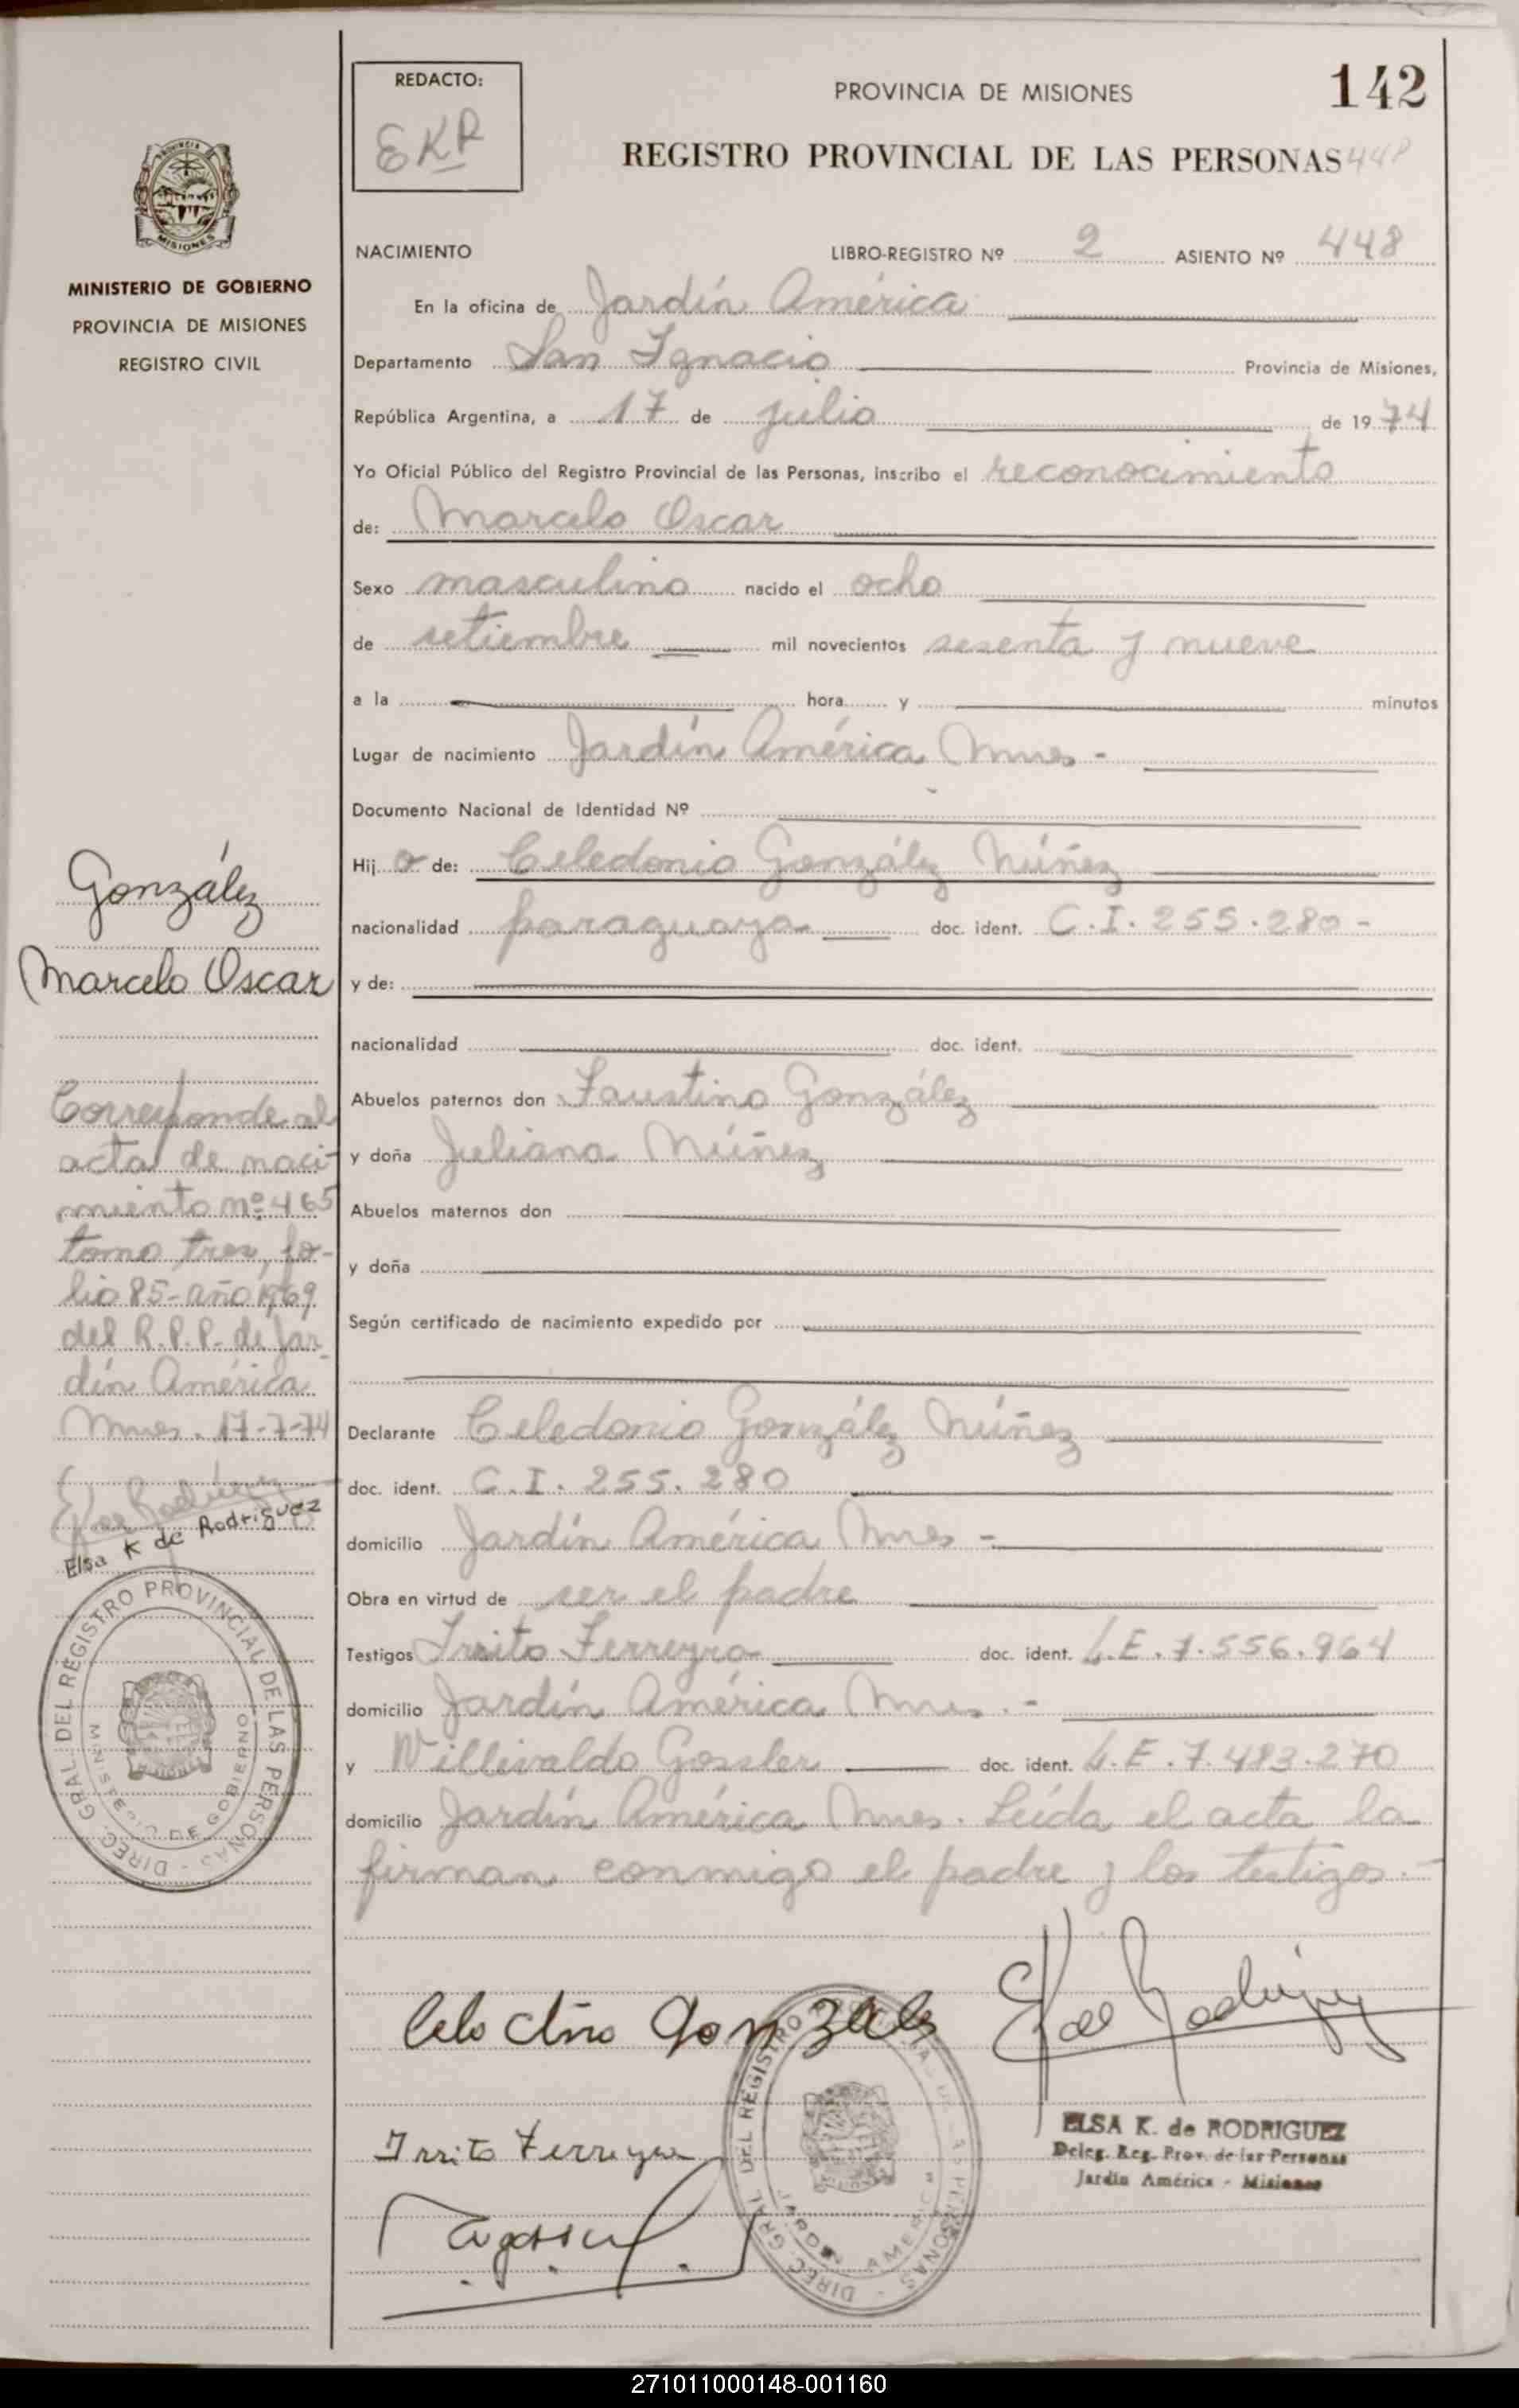 REDACTO:
EKR
PROVINCIA DE MISIONES
142
REGISTRO PROVINCIAL DE LAS PERSONAS 448
PROVINCIA
MISIONES
MINISTERIO DE GOBIERNO
PROVINCIA DE MISIONES
REGISTRO CIVIL
NACIMIENTO LIBRO-REGISTRO Nº 2 ASIENTO Nº 448
En la oficina de Jardín América
Departamento San Ignacio Provincia de Misiones,
República Argentina, a 17 de julio de 1974
Yo Oficial Público del Registro Provincial de las Personas, inscribo el reconocimiento
de: Marcelo Oscar
Sexo masculino nacido el ocho
de setiembre mil novecientos sesenta y nueve
a la hora y minutos
Lugar de nacimiento Jardín América Mnes -
Documento Nacional de Identidad Nº
Hijo de: Celedonio González Núñez
nacionalidad paraguaya doc. ident. C.I. 255.280-
y de:
nacionalidad doc. ident.
Abuelos paternos don Faustino González
y doña Juliana Núñez
Abuelos maternos don
y doña
Según certificado de nacimiento expedido por
Declarante Celedonio González Núñez
doc. ident. C.I. 255.280
domicilio Jardín América Mnes -
Obra en virtud de ser el padre
Testigos Irrito Ferreyra doc. ident. L.E. 7.556.964
domicilio Jardín América Mnes. -
y Willivaldo Gossler doc. ident. L.E. 7.483.270
domicilio Jardín América Mnes. Leída el acta la
firman conmigo el padre y los testigos.-
González
Marcelo Oscar
Corresponde al
acta de naci-
miento nº 465
tomo tres, fo-
lio 85-año 1969
del R.P.P. de Jar
dín América
Mnes. 17-7-74
Elsa K de Rodriguez
DIREC. GRAL. DEL REGISTRO PROVINCIAL DE LAS PERSONAS
MINISTERIO DE GOBIERNO
Gonzalez
Irrito Ferreyra
DIREC. GRAL. DEL REGISTRO PERSONAS
JARDIN AMERICA
ELSA K. de RODRIGUEZ
Deleg. Reg. Prov. de las Personas
Jardín América - Misiones
271011000148-001160